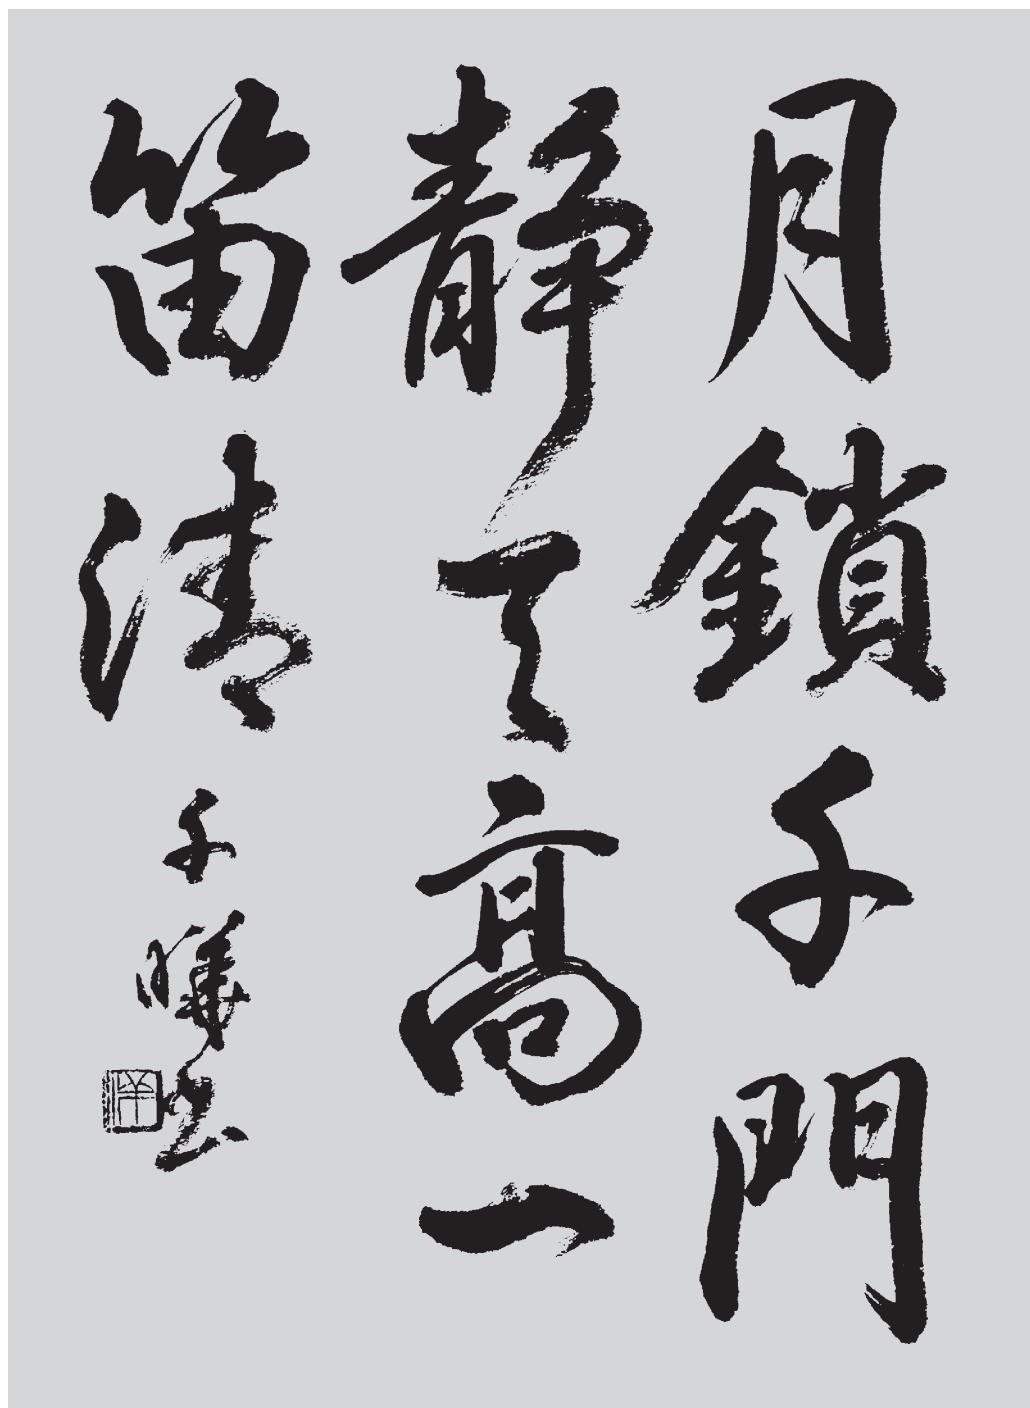 月鎖千門
静天高一
笛清
千曄書